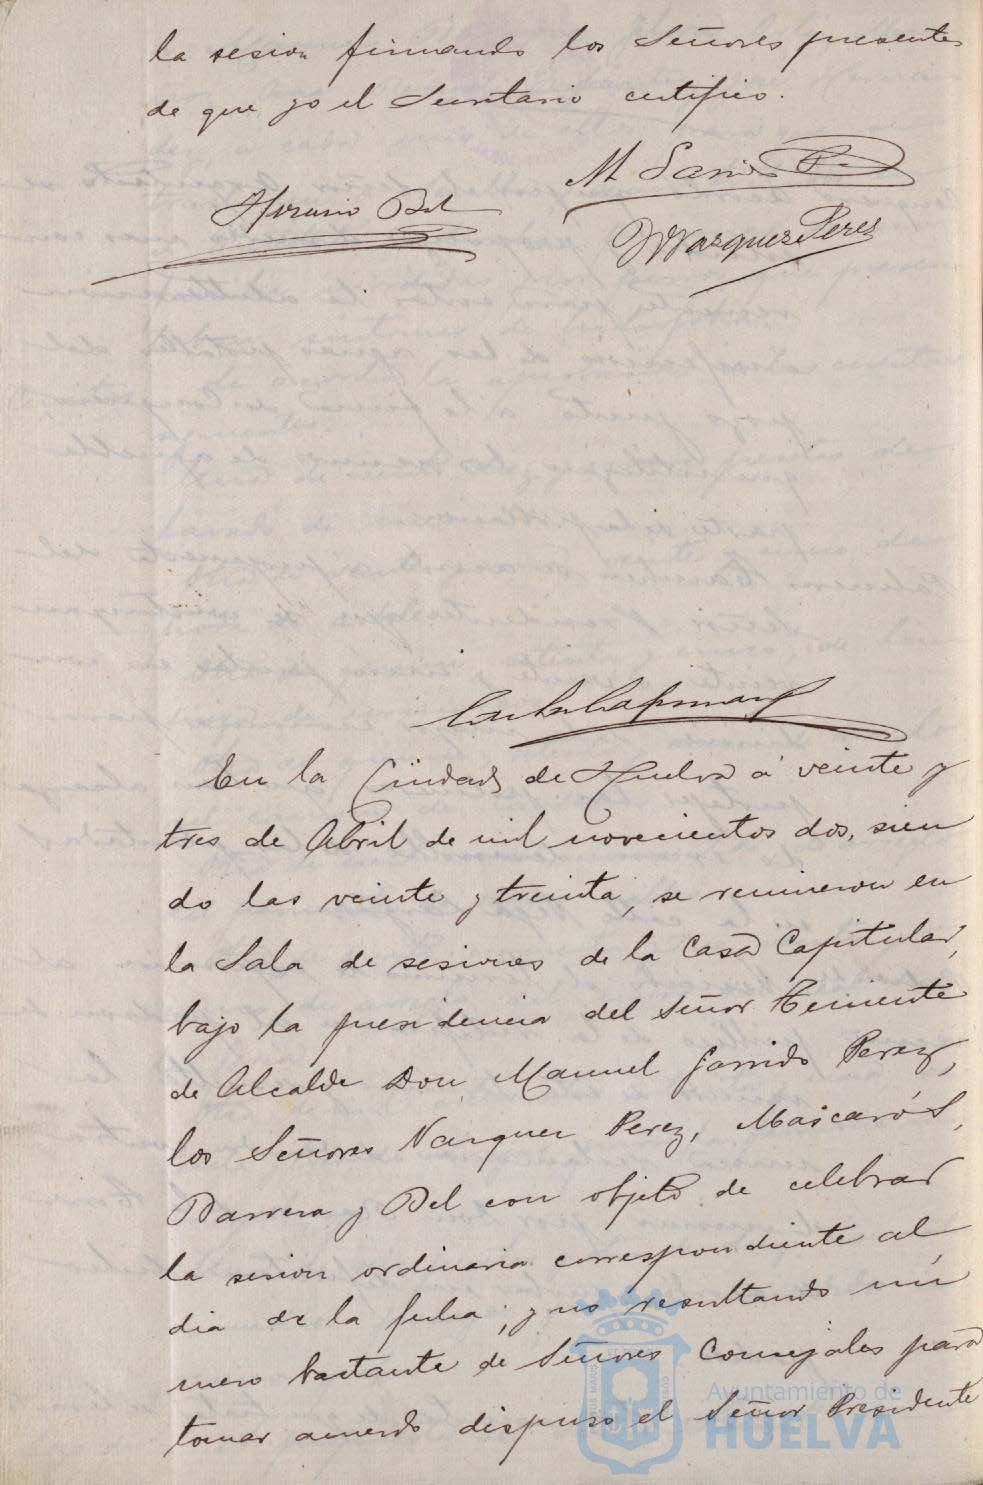 la sesion firmando los Señores presentes
de que yo el Secretario certifico.
M Garrido Pz
Horacio Bel
W Vazquez Perez
En la Ciudad de Huelva á veinte y
tres de Abril de mil novecientos dos, sien
do las veinte y treinta, se reunieron en
la Sala de sesiones de la Casa Capitular,
bajo la presidencia del Señor Teniente
de Alcalde Don Manuel Garrido Perez,
los Señores Vazquez Perez, Mascarós,
Barrera y Bel con objeto de celebrar
la sesion ordinaria correspondiente al
dia de la fecha; y no resultando nú
mero bastante de Señores Concejales para
tomar acuerdo dispuso el Señor Presidente
Ayuntamiento de
HUELVA